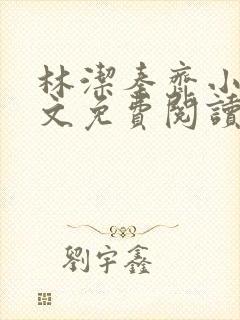 林潔秦齊小
文免費閱讀
劉宇鑫